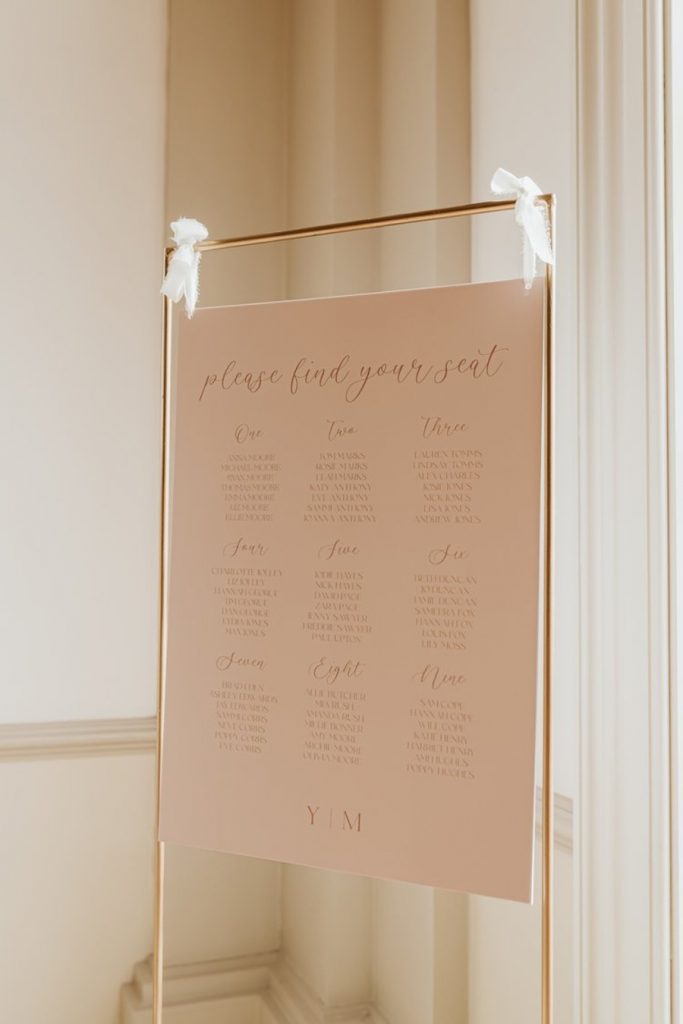 please find your seat
One
ANNA MOORE
MICHAEL MOORE
RYAN MOORE
THOMAS MOORE
EMMA MOORE
LIZ MOORE
ELLIE MOORE
Two
TOM MARKS
ROSIE MARKS
LEAH MARKS
KATY ANTHONY
EVE ANTHONY
SAMMI ANTHONY
JOANNA ANTHONY
Three
LAUREN TOMMS
LINDSAY TOMMS
ALEX CHARLES
JOSIE JONES
NICK JONES
LISA JONES
ANDREW JONES
Four
CHARLOTTE JOLLEY
LIZ JOLLEY
HANNAH GEORGE
TIM GEORGE
DAN GEORGE
LYDIA JONES
MAX JONES
Five
JODIE HAYES
NICK HAYES
DAVID PAGE
ZARA PAGE
JENNY SAWYER
FREDDIE SAWYER
PAUL UPTON
Six
BETH DUNCAN
JO DUNCAN
JAMIE DUNCAN
SAMEERA FOX
HANNAH FOX
LOUIS FOX
LILY MOSS
Seven
BRAD EDEN
ASHLEY EDWARDS
JAY EDWARDS
SAMMI CORBS
NEVE CORBS
POPPY CORBS
EVE CORBS
Eight
ALLIE BUTCHER
MIA RUSH
AMANDA RUSH
MILLIE BONNER
AMY MOORE
ARCHIE MOORE
OLIVIA MOORE
Nine
SAM COPE
HANNAH COPE
WILL COPE
KATIE HENRY
HARRIET HENRY
AMI HUGHES
POPPY HUGHES
Y | M